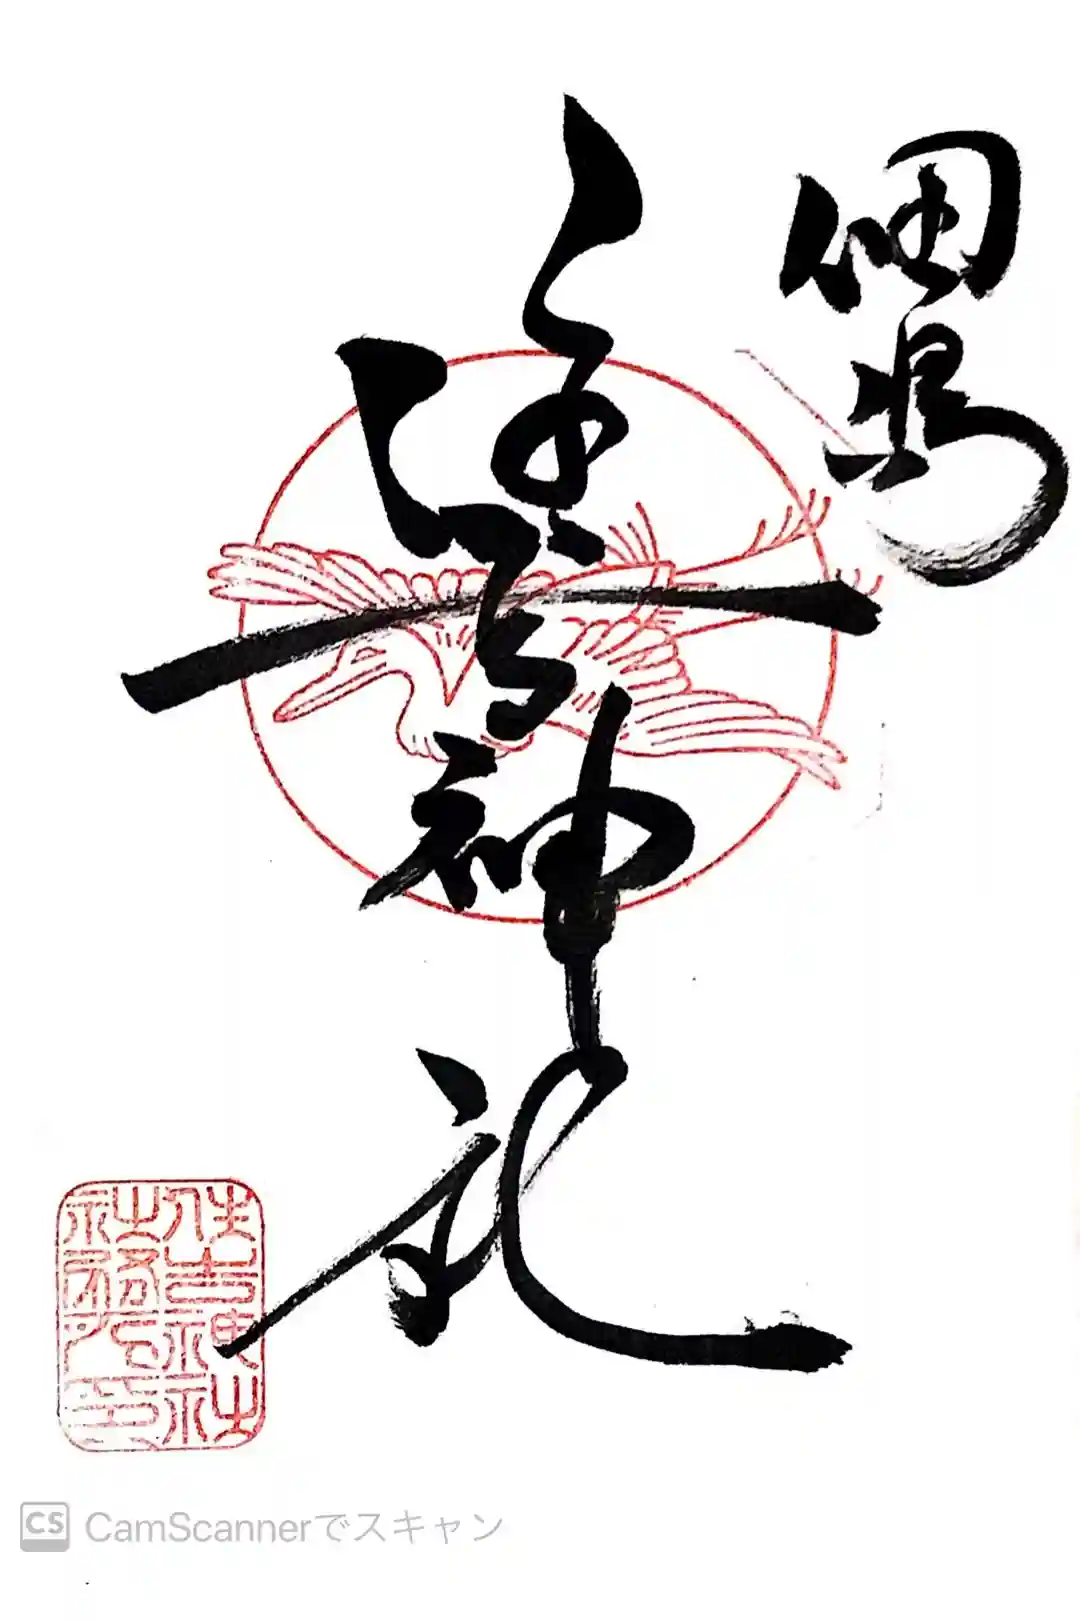 佃嶋
住吉神社
住吉神社
社務所印
CamScannerでスキャン